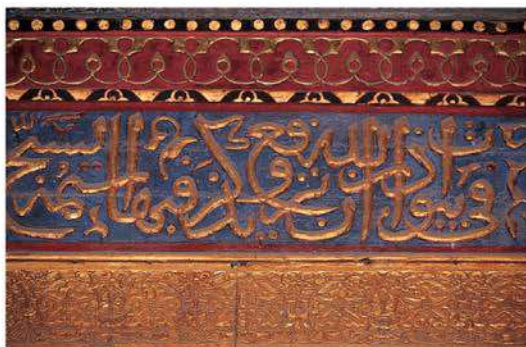 في بيوت اذن الله ان ترفع ويذكر فيها اسمه يسبح